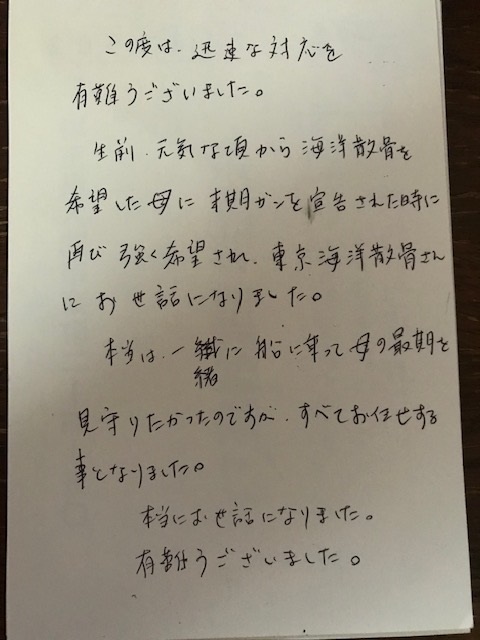 この度は、迅速な対応を
有難うございました。
生前、元気な頃から海洋散骨を
希望した母に末期ガンを宣告された時に
再び強く希望され、東京海洋散骨さん
にお世話になりました。
本当は、一緒に船に乗って母の最期を
見守りたかったのですが、すべてお任せする
事となりました。
本当にお世話になりました。
有難うございました。